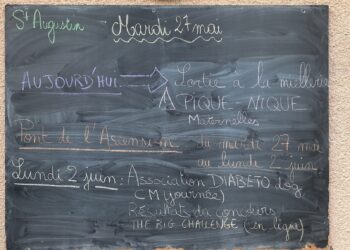 St Augustin
Mardi 27 mai
AUJOURD'HUI Sortie à la
PIQUE-NIQUE
Maternelles
Pont de l'Ascension du mardi 27 mai
au lundi 2 juin
Lundi 2 juin: Association DIABÉTO
CM (journée)
Résultats du concours
THE BIG CHALLENGE (en ligne)